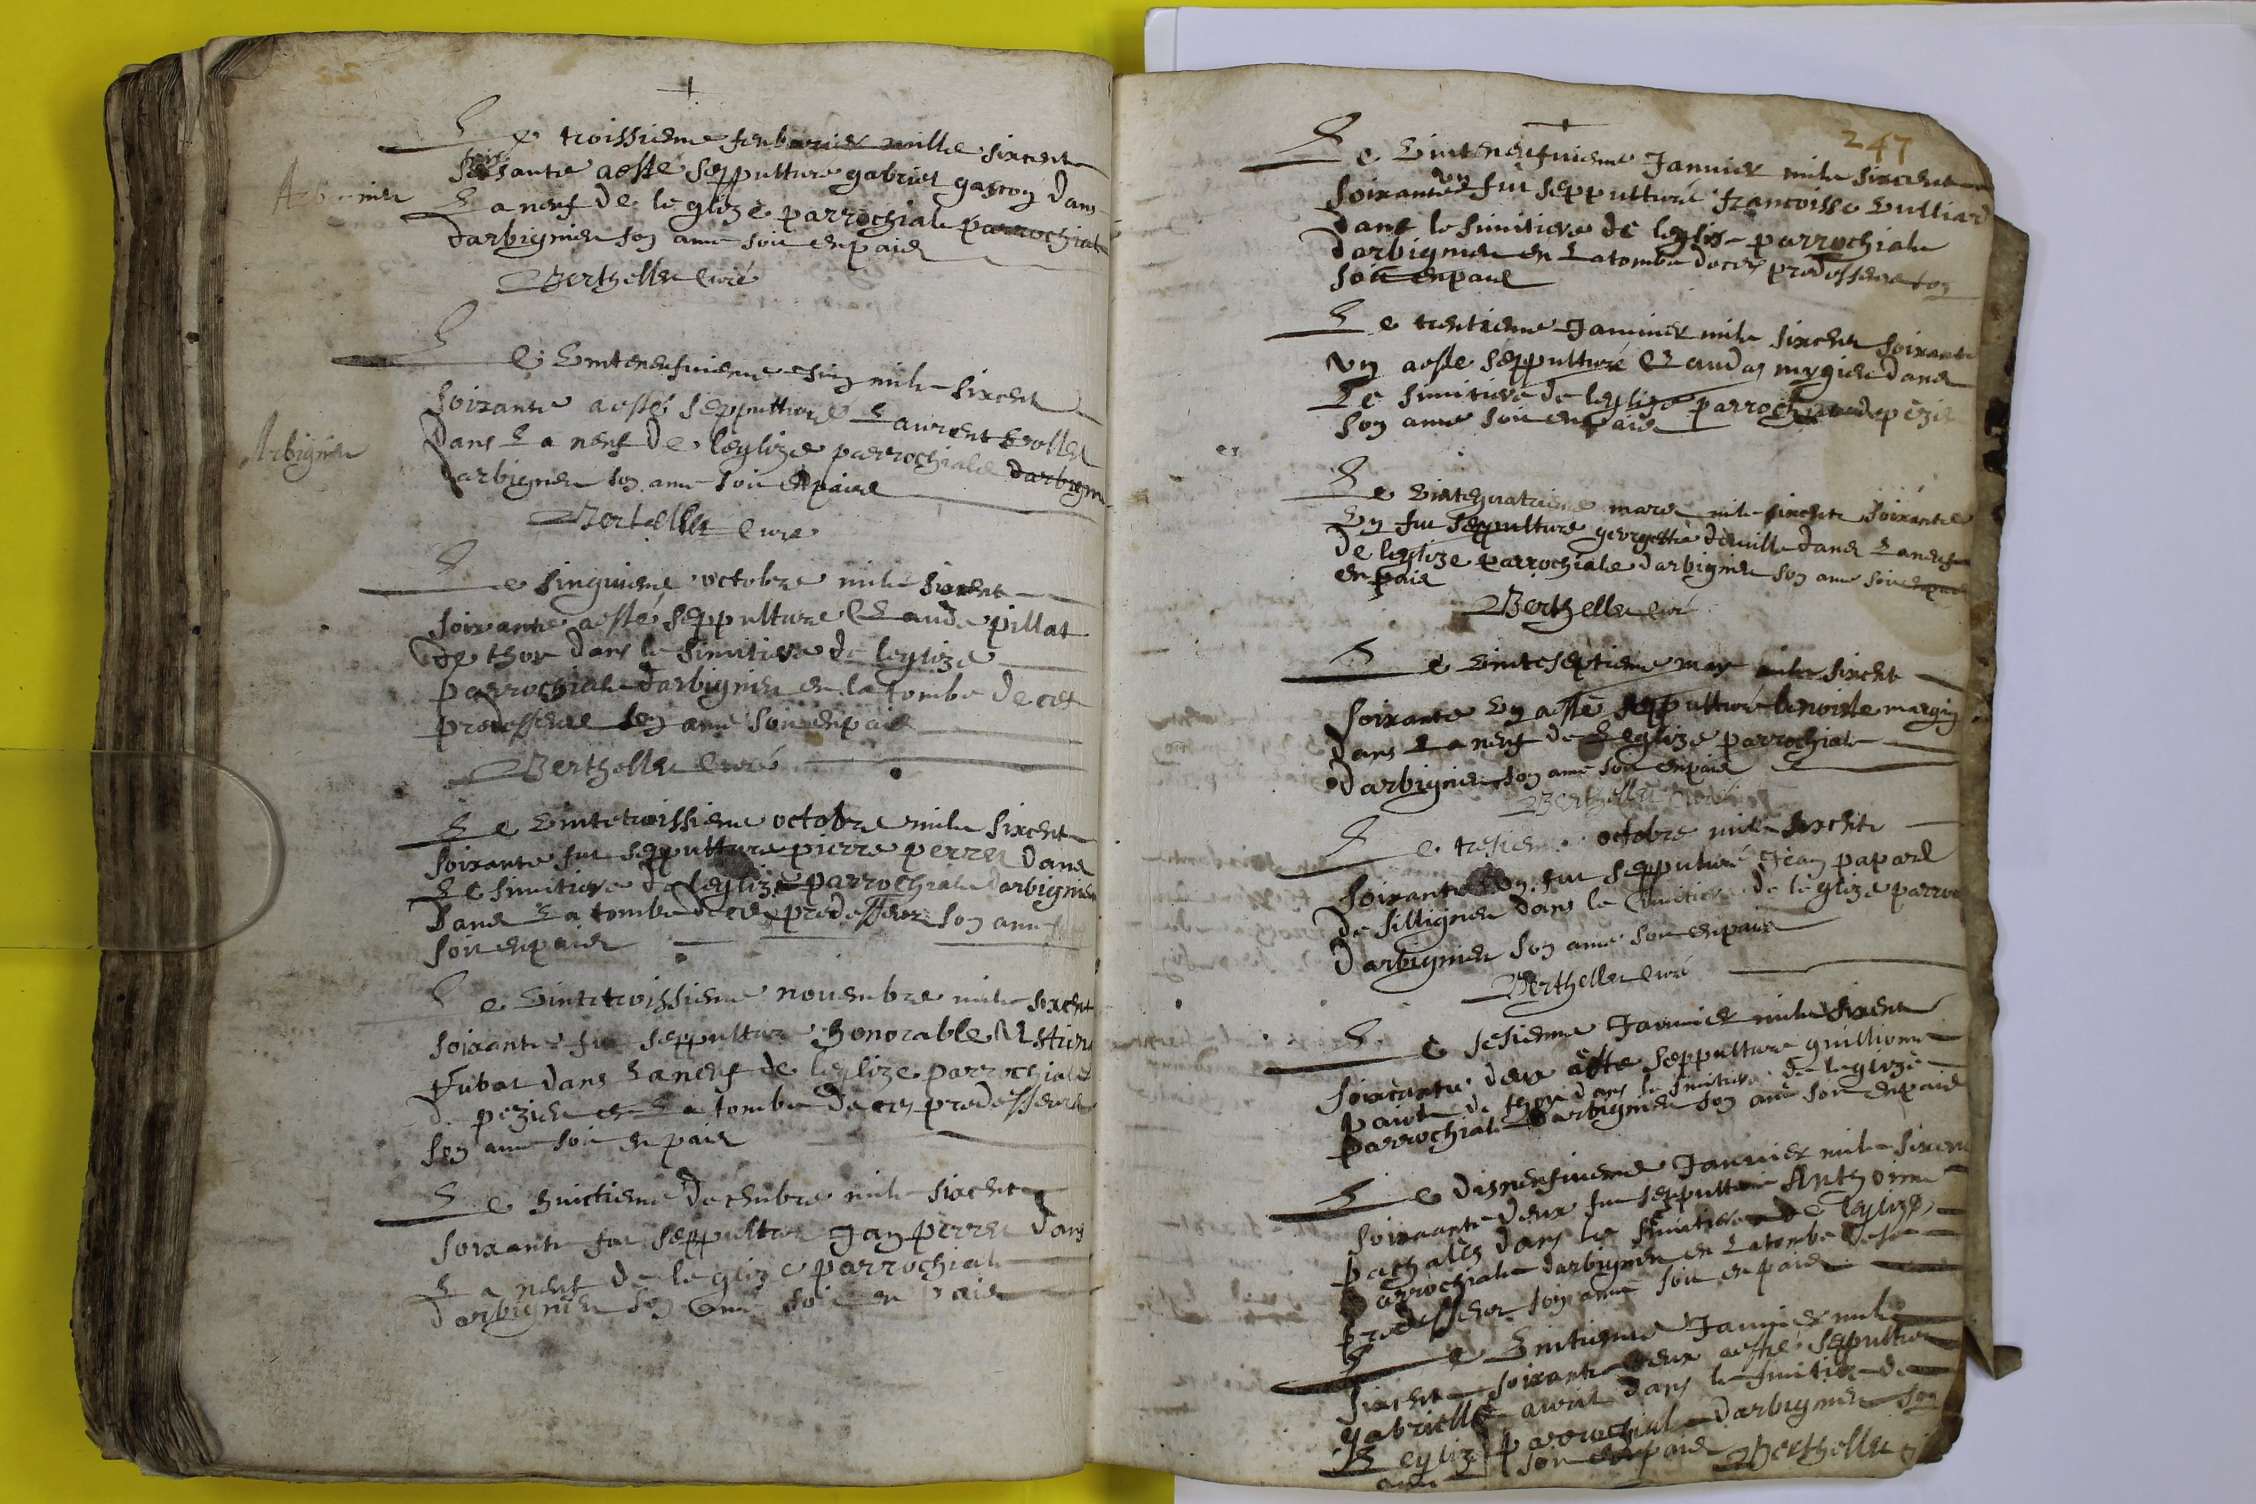 Le troissieme feubvrier mille sixcent
soisante aesté sepputture gabriel gascoy dans
La nenf de leglize parrochiale parrochiale
darbignieu soy ame soit enpaix
Berthellet Curé
Le Vinteneufvieme Juin mile sixcent
soixante aesté sepputturé Laurent
Arbignieu
Dans La nenf de leglize parrochiale darbigni
darbignieu soy ame soit enpaix
Berthellet Curé
Le sinquieme octobre mile sixcent
soixante aesté sepputturé Claude pillat
de thoy dans le simitiere de leglize
parrochiale darbignieu en la tombe de ces
predesseurs soy ame soit enpaix
Berthellet Curé
Le Vintetroissieme octobre mile sixcent
soixante fut sepputture pierre perret dans
Le simitiere de leglize parrochiale darbignieu
Dans La tombe de ces predesseur soy ame
soit enpaix
Le Vintetroissieme novembre mile sixcent
soixante fut sepputture honorable
dans La nenf de leglize parrochiale
de pezieu en La tombe de ces predesseurs
soy ame soit en paix
Le huictieme decembre mile sixcent
soixante fut sepputture Jay perret dans
La nenf de leglize parrochiale
darbignieu soy ame soit en paix
247
Le Vinteneufvieme Janvier mile sixcent
soixante vy fut sepputturé francoisse Vulliard
dans le simitiere de leglise parrochiale
darbignieu en La tombe de ces predesseurs soy
soit enpaix
Le trentieme Janvier mile sixcent soixante
vy aesté sepputturé Claudas mygieu dans
Le simitiere de leglize parrochiale de pezieu
soy ame soit enpaix
Le Vintequatrieme mars mile sixcent soixante
Vy fut sepputture georgette dans La nenf
de leglize parrochiale darbignieu soy ame soit enpaix
en paix
Berthellet Curé
Le Vinteseptieme may mile sixcent
soixante Vy aesté sepputturé benoiste margiy
dans La nenf de Leglize parrochiale
darbignieu soy ame soit enpaix
Berthellet Curé
Le tresieme octobre mile sixcent
soixante Vy fut sepputturé Jeay papard
de sillignieu dans le simitiere de leglize parro
Darbignieu soy ame soit enpaix
Berthellet Curé
Le sesieme Janvier mile sixcent
soixante deux aesté sepputture guillione
dans le simitiere de leglize
parrochiale darbignieu soy ame soit enpaix
Le disneufvieme Janvier mile sixcent
soixante deux fut sepputture Anthoine
dans le simitiere de leglize
parrochiale darbignieu en La tombe de se
predesseur soy ame soit en paix
Le Vintieme Janvier mile
sixcent soixante deux aesté sepputture
gabrielle dans le simitiere de
Leglize parrochiale darbignieu soy
ame soit enpaix Berthellet